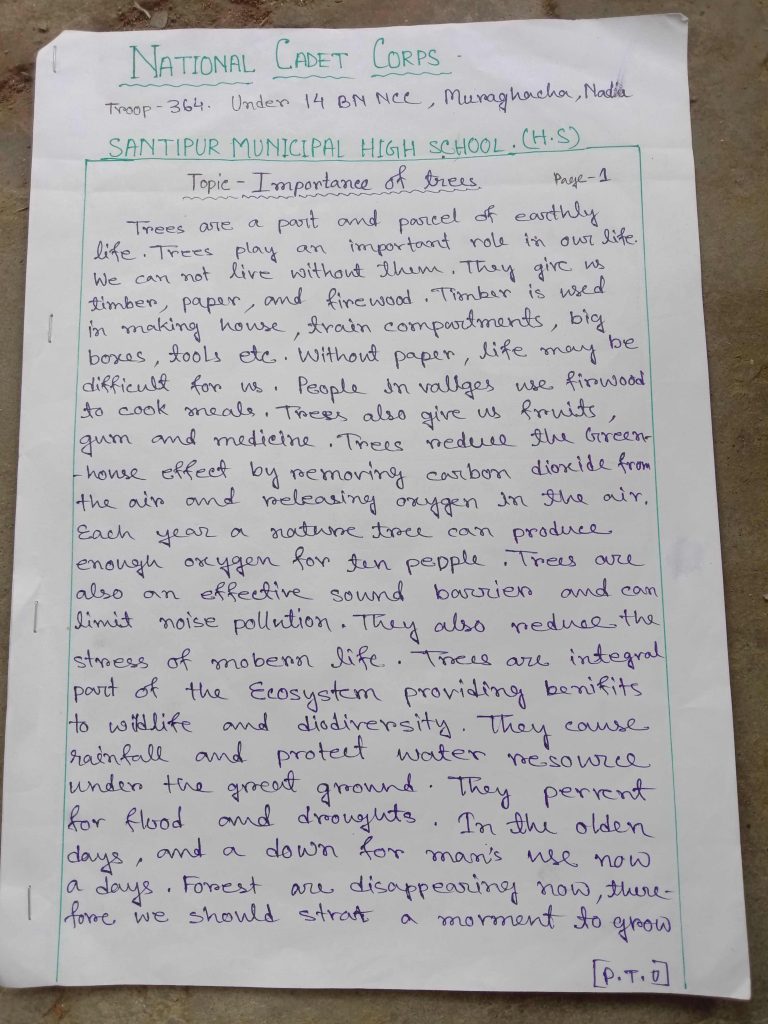 NATIONAL CADET CORPS.
Troop-364. Under 14 BN NCC, Muraghacha, Nadia
SANTIPUR MUNICIPAL HIGH SCHOOL.(H.S)
Topic - Importance of trees. Page-1
Trees are a part and parcel of earthly
life. Trees play an important role in our life.
We can not live without them. They give us
timber, paper, and firewood. Timber is used
in making house, train compartments, big
boxes, tools etc. Without paper, life may be
difficult for us. People in vallges use firwood
to cook meals. Trees also give us fruits,
gum and medicine. Trees reduce the Green-
-house effect by removing carbon dioxide from
the air and releasing oxygen in the air.
Each year a nature tree can produce
enough oxygen for ten people. Trees are
also an effective sound barrier and can
limit noise pollution. They also reduce the
stress of mobern life. Trees are integral
part of the Ecosystem providing benifits
to wildlife and diodiversity. They cause
rainfall and protect water resource
under the great ground. They pervent
for flood and droughts. In the olden
days, and a down for man's use now
a days. Forest are disappearing now, there-
fore we should strat a morment to grow
[P.T.O]